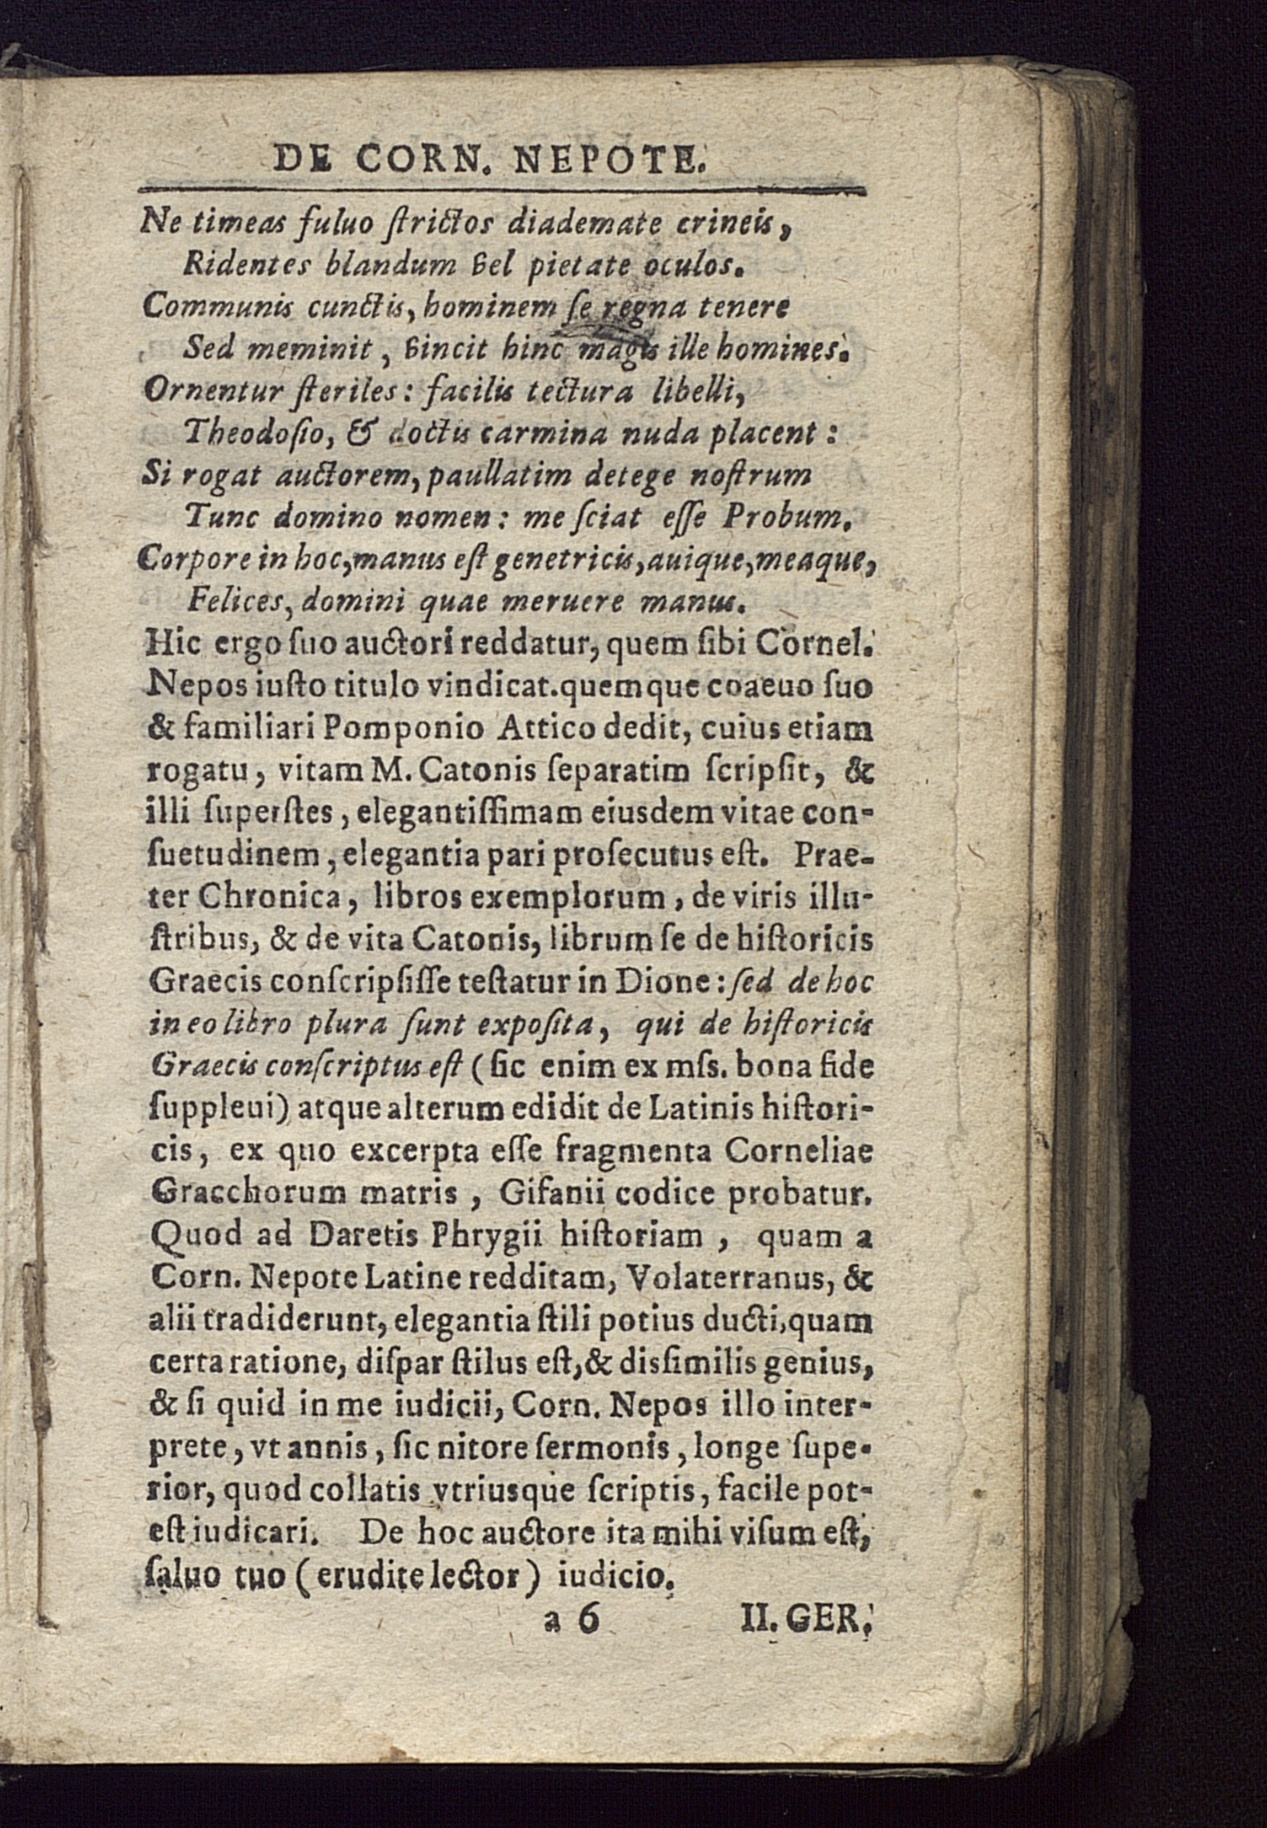 DE CORN. NEPOTE.
Ne timeas fuluo ſtrictos diademate crineis,
Ridentes blandum vel pietate oculos.
Communis cunctis, hominem ſe regna tenere
Sed meminit, vincit hinc magis ille homines.
Ornentur ſteriles: facilis tectura libelli,
Theodoſio, & doctis carmina nuda placent:
Si rogat auctorem, paullatim detege noſtrum
Tunc domino nomen: me ſciat eſſe Probum.
Corpore in hoc, manus eſt genetricis, auique, meaque,
Felices, domini quae meruere manus.
Hic ergo ſuo auctori reddatur, quem ſibi Cornel.
Nepos iuſto titulo vindicat. quemque coaeuo ſuo
& familiari Pomponio Attico dedit, cuius etiam
rogatu, vitam M. Catonis ſeparatim ſcripſit, &
illi ſuperſtes, elegantiſſimam eiusdem vitae con-
ſuetudinem, elegantia pari proſecutus eſt. Prae-
ter Chronica, libros exemplorum, de viris illu-
ſtribus, & de vita Catonis, librum ſe de hiſtoricis
Graecis conſcripſiſſe teſtatur in Dione: ſed de hoc
in eo libro plura ſunt expoſita, qui de hiſtoricis
Graecis conſcriptus eſt (ſic enim ex mſs. bona fide
ſuppleui) atque alterum edidit de Latinis hiſtori-
cis, ex quo excerpta eſſe fragmenta Corneliae
Gracchorum matris, Gifanii codice probatur.
Quod ad Daretis Phrygii hiſtoriam, quam a
Corn. Nepote Latine redditam, Volaterranus, &
alii tradiderunt, elegantia ſtili potius ducti, quam
certa ratione, diſpar ſtilus eſt, & disſimilis genius,
& ſi quid in me iudicii, Corn. Nepos illo inter-
prete, vt annis, ſic nitore ſermonis, longe ſupe-
rior, quod collatis vtriusque ſcriptis, facile pot-
eſt iudicari. De hoc auctore ita mihi viſum eſt,
ſaluo tuo (erudite lector) iudicio.
a 6 II. GER.